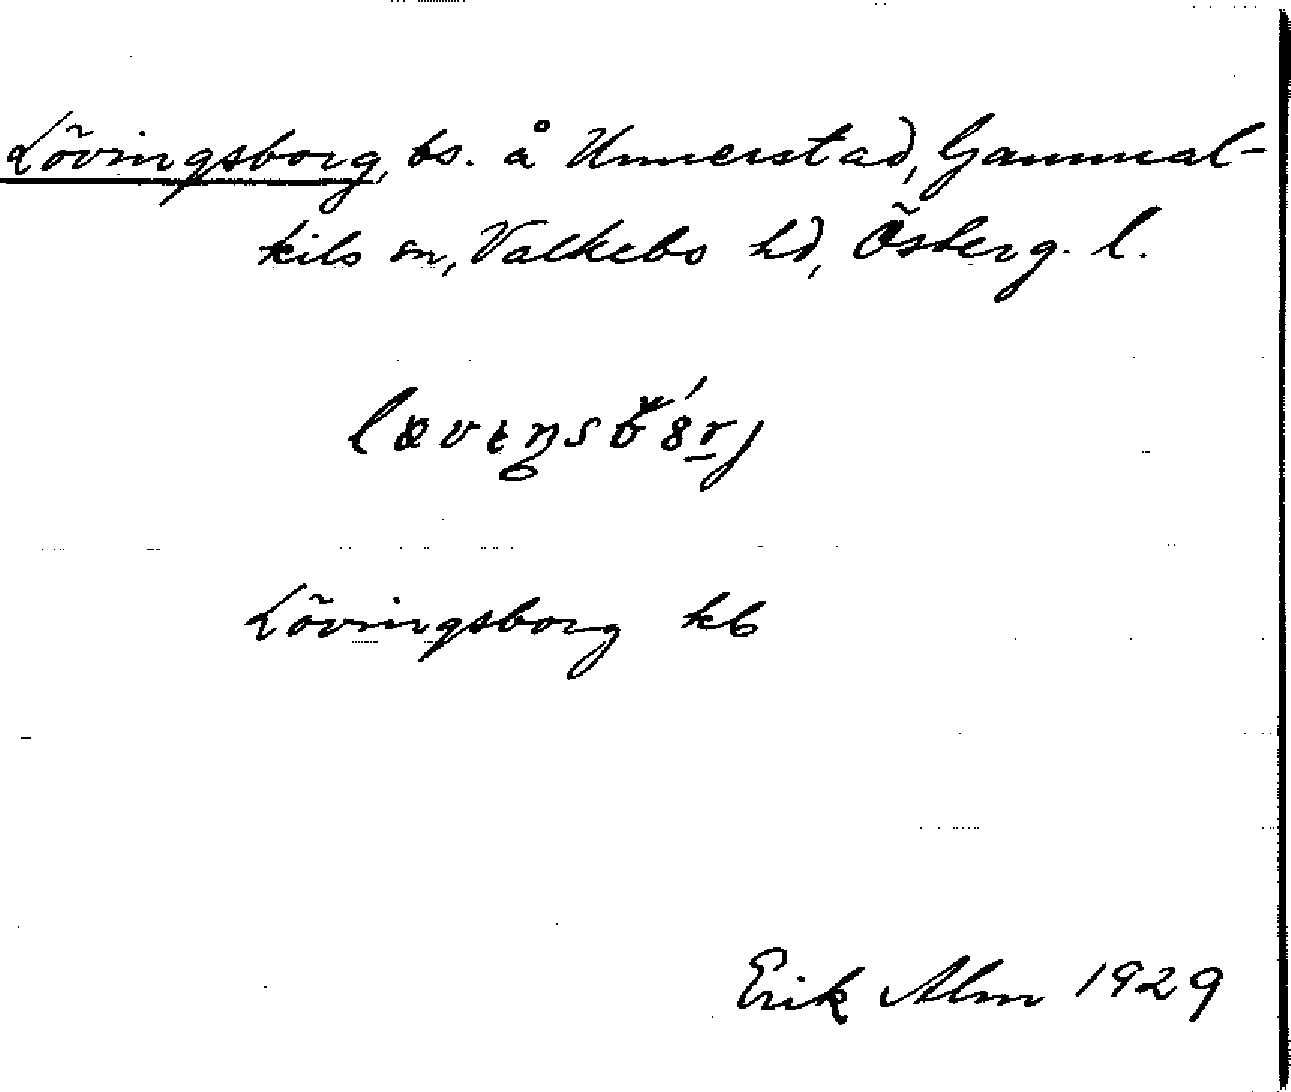 Lövingsborg, bs. å Unnerstad, Gammal-
kils sn, Valkebo hd, Österg. l.
Lövingsborg kb
Erik Alm 1929